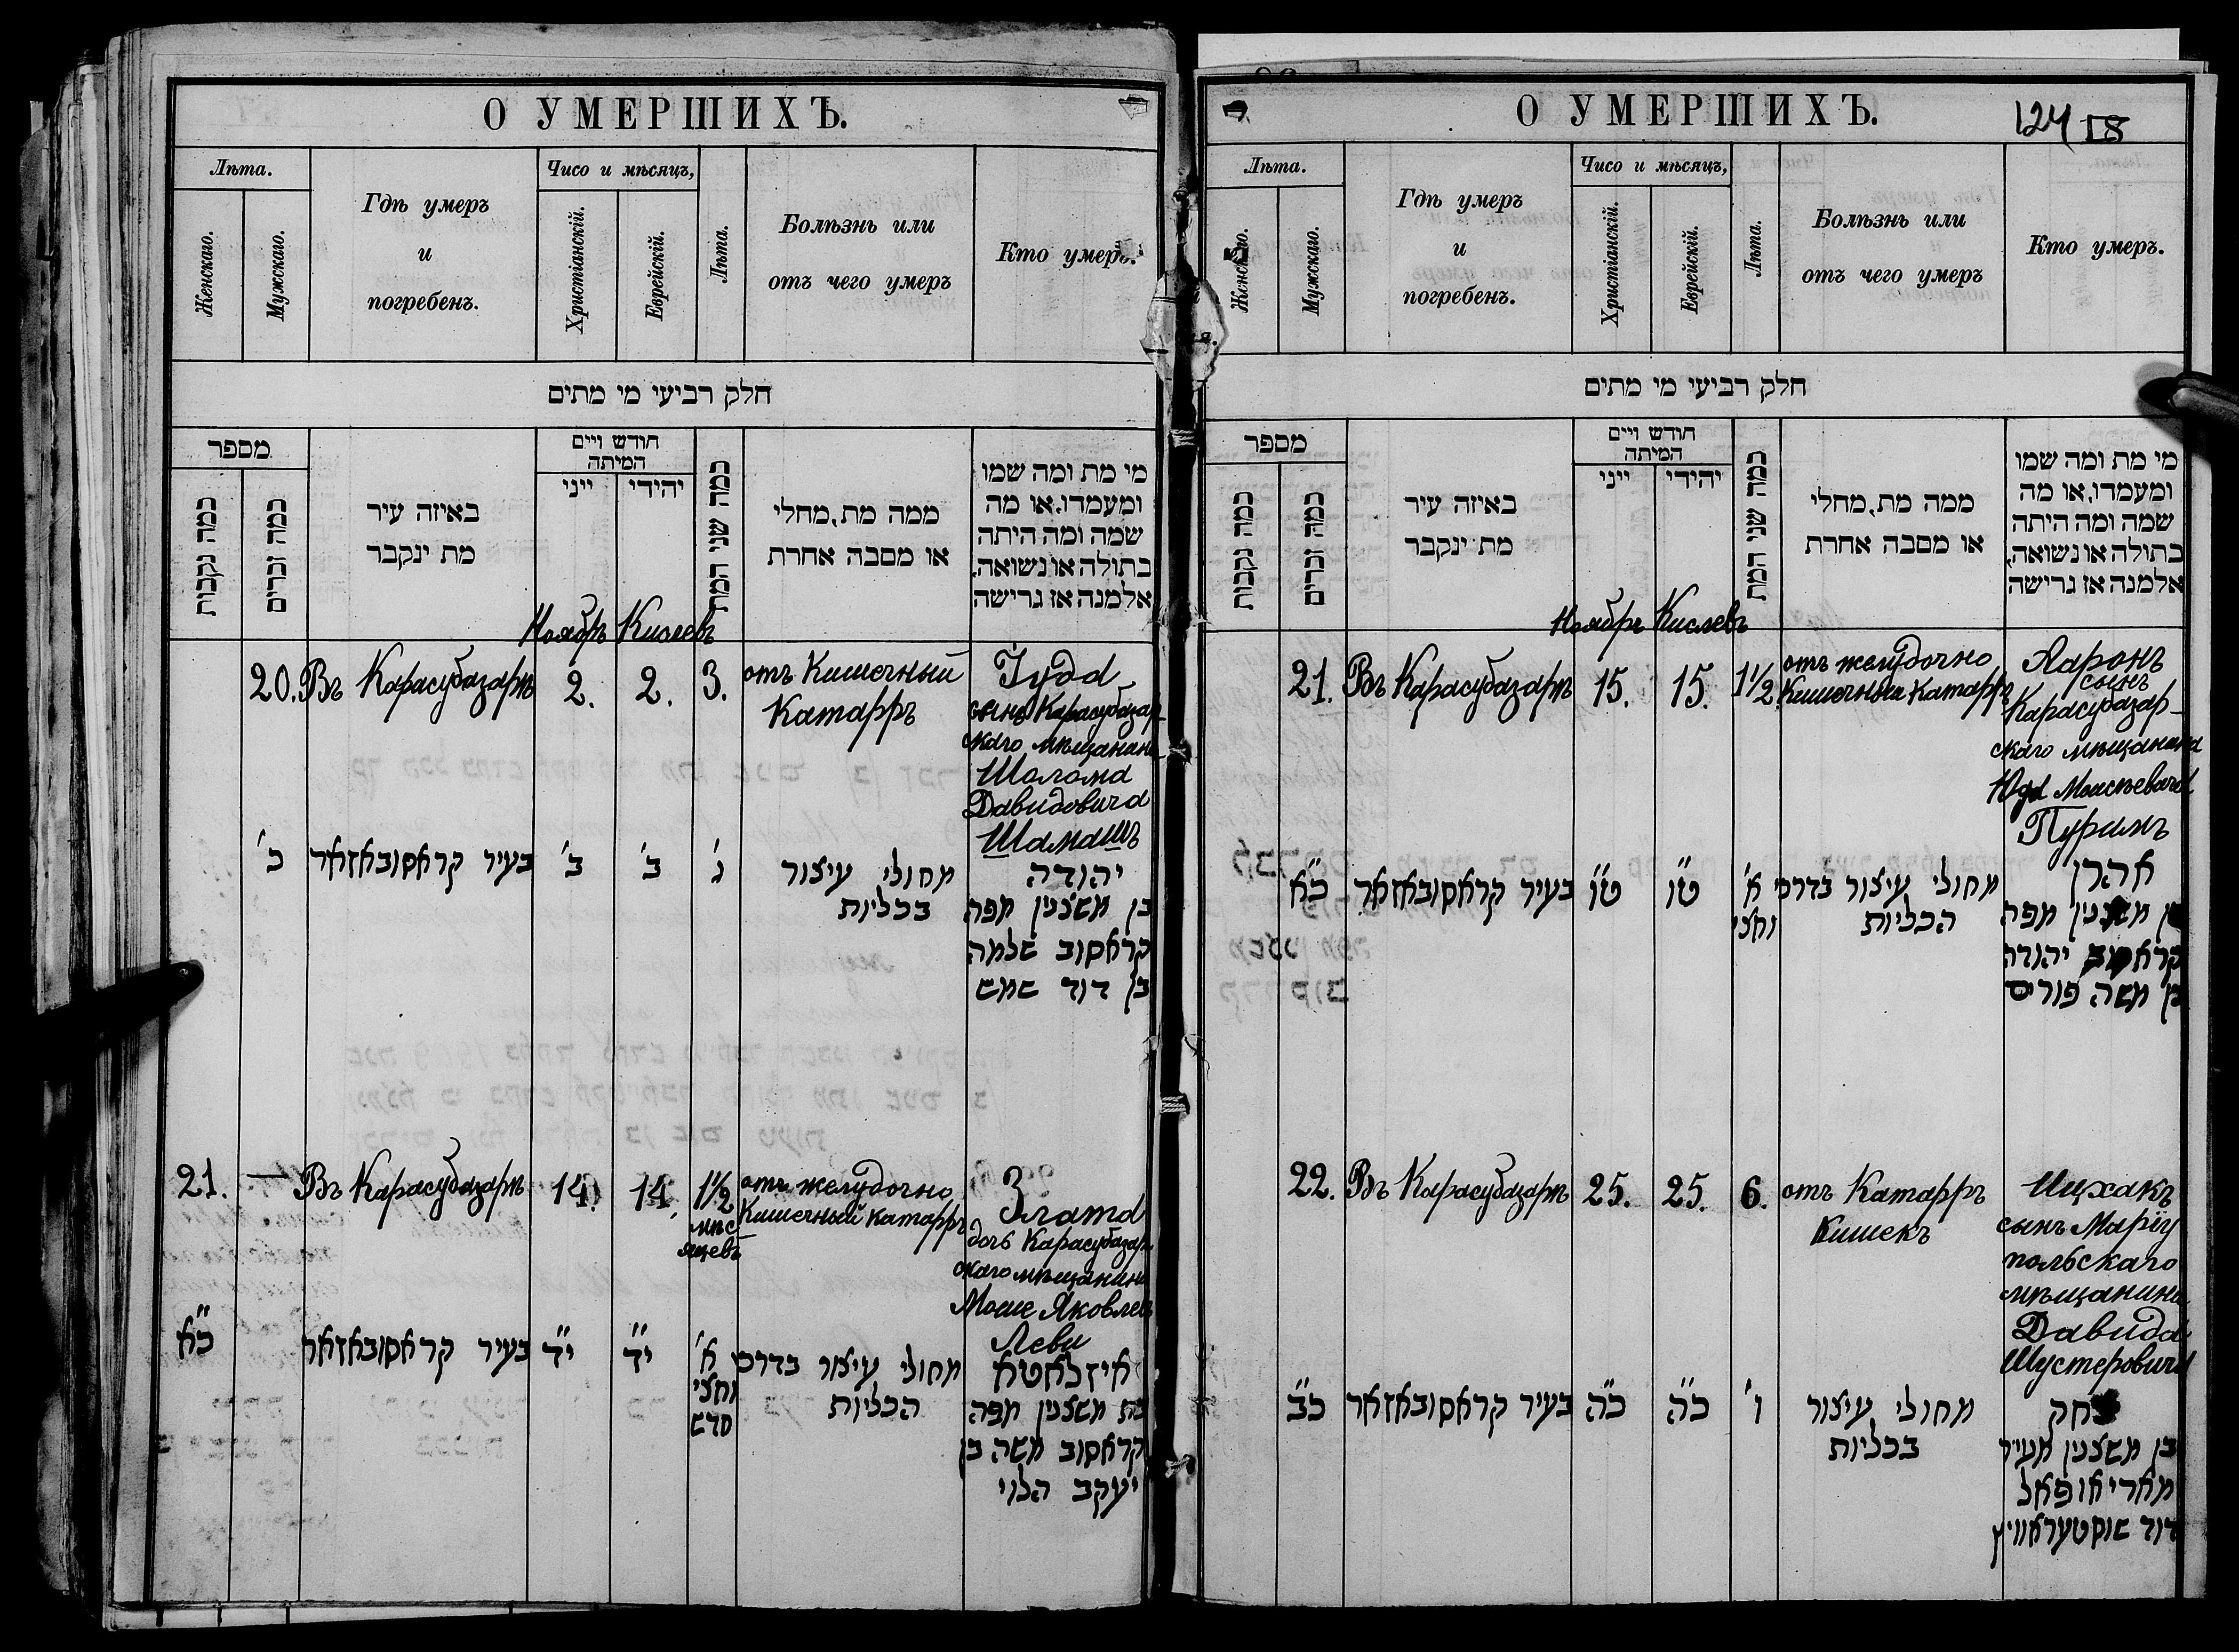 О УМЕРШИХЪ.
Лѣта.
Женскаго.
Мужскаго.
Гдѣ умеръ
и
погребенъ.
Чисо и мѣсяцъ,
Христіанскій.
Еврейскій.
Лѣта.
Болѣзнь или
отъ чего умеръ
Кто умеръ.
חלק רביעי מי מתים
מספר
כמה נקבות
כמה זכרים
באיזה עיר
מת ינקבר
חודש ויים
המיתה
ייני
יהידי
כמה שני המת
ממה מת, מחלי
או מסבה אחרת
מי מת ומה שמו
ומעמדו, או מה
שמה ומה היתה
בתולה או נשואה,
אלמנה אז גרישה
Ноябръ Кислевъ
20. Въ Карасубазарѣ 2. 2. 3. отъ Кишечный
Катарръ
Іуда
сынъ Карасубазар-
скаго мѣщанина
Шолома
Давидовича
Шамашъ
כ' בעיר קראסובאזאר ב' ב' ג' מחולי עיצור
בכליות
יהודה
בן משצנין מפה
קראסוב שלמה
בן דוד שמש
21. — Въ Карасубазарѣ 14. 14. 1½
мѣс
яцевъ
отъ желудочно
Кишечный катарръ
Злата
дочь Карасубазар
скаго мѣщанина
Моше Яковлев
Леви
כ"א בעיר קראסובאזאר י"ד י"ד א'
וחצי
חדש
מחולי עיצור בדרכי
הכליות
איזלאטא
בת משצנין מפה
קראסוב משה בן
יעקב הלוי
О УМЕРШИХЪ.
124
Лѣта.
Женскаго.
Мужскаго.
Гдѣ умеръ
и
погребенъ.
Чисо и мѣсяцъ,
Христіанскій.
Еврейскій.
Лѣта.
Болѣзнь или
отъ чего умеръ
Кто умеръ.
חלק רביעי מי מתים
מספר
כמה נקבות
כמה זכרים
באיזה עיר
מת ינקבר
חודש ויים
המיתה
ייני
יהידי
כמה שני המת
ממה מת, מחלי
או מסבה אחרת
מי מת ומה שמו
ומעמדו, או מה
שמה ומה היתה
בתולה או נשואה,
אלמנה אז גרישה
Ноябръ Кислевъ
21. Въ Карасубазарѣ 15. 15. 1½. отъ желудочно
Кишечный Катарръ
Ааронъ
сынъ
Карасубазар-
скаго мѣщанина
Моисѣевича
Пуримъ
כ"א בעיר קראסובאזאר ט"ו ט"ו א'
וחצי
מחולי עיצור בדרכי
הכליות
אהרן
בן משצנין מפה
קראסוב יהודה
בן משה פורים
22. Въ Карасубазарѣ 25. 25. 6. отъ Катарръ
Кишекъ
Ицхакъ
сынъ Маріу
польскаго
мѣщанина
Давида
Шустеровича
כ"ב בעיר קראסובאזאר כ"ה כ"ה ו' מחולי עיצור
בכליות
בן משצנין מעיר
מאריאופאל
דוד שוסטעראוויץ